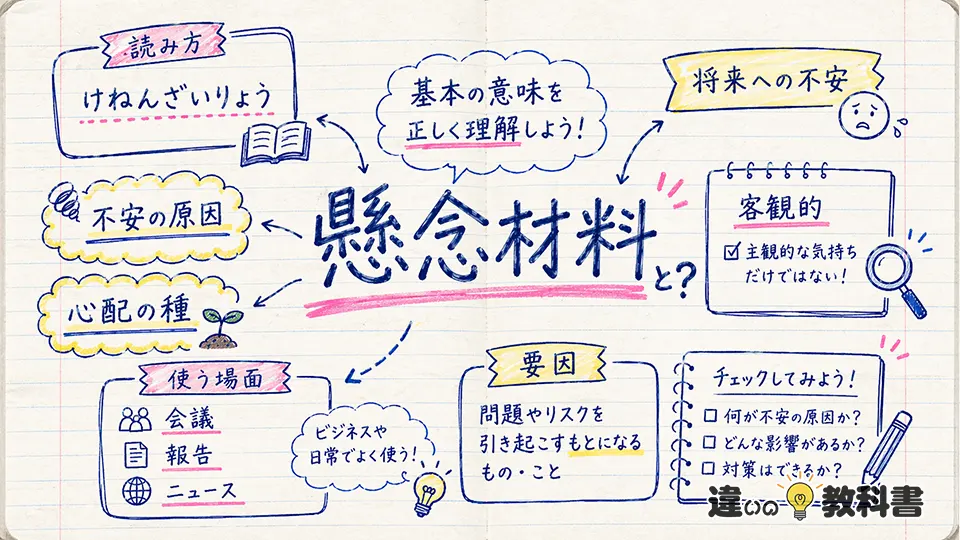 読み方
けねんざいりょう
基本の意味を
正しく理解しよう!
将来への不安
懸念材料とは?
不安の原因
心配の種
客観的
主観的な気持ち
だけではない!
使う場面
会議
報告
ニュース
ビジネスや
日常でよく使う!
要因
問題やリスクを
引き起こすもとになる
もの・こと
チェックしてみよう!
何が不安の原因か?
どんな影響があるか?
対策はできるか?
違いの教科書